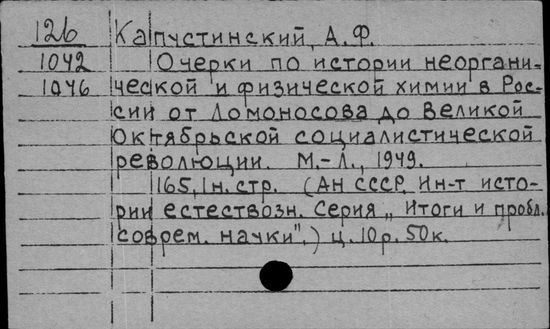 126 Капустинский, А.Ф.
1042 Очерки по истории неоргани-
1046 ческой и физической химии в Рос-
сии от Ломоносова до Великой
Октябрьской социалистической
революции. М.-Л., 1949.
165, 1н. стр. (АН СССР, Ин-т исто-
рии естествозн. Серия „Итоги и пробл.
соврем. науки".) ц. 10р. 50к.